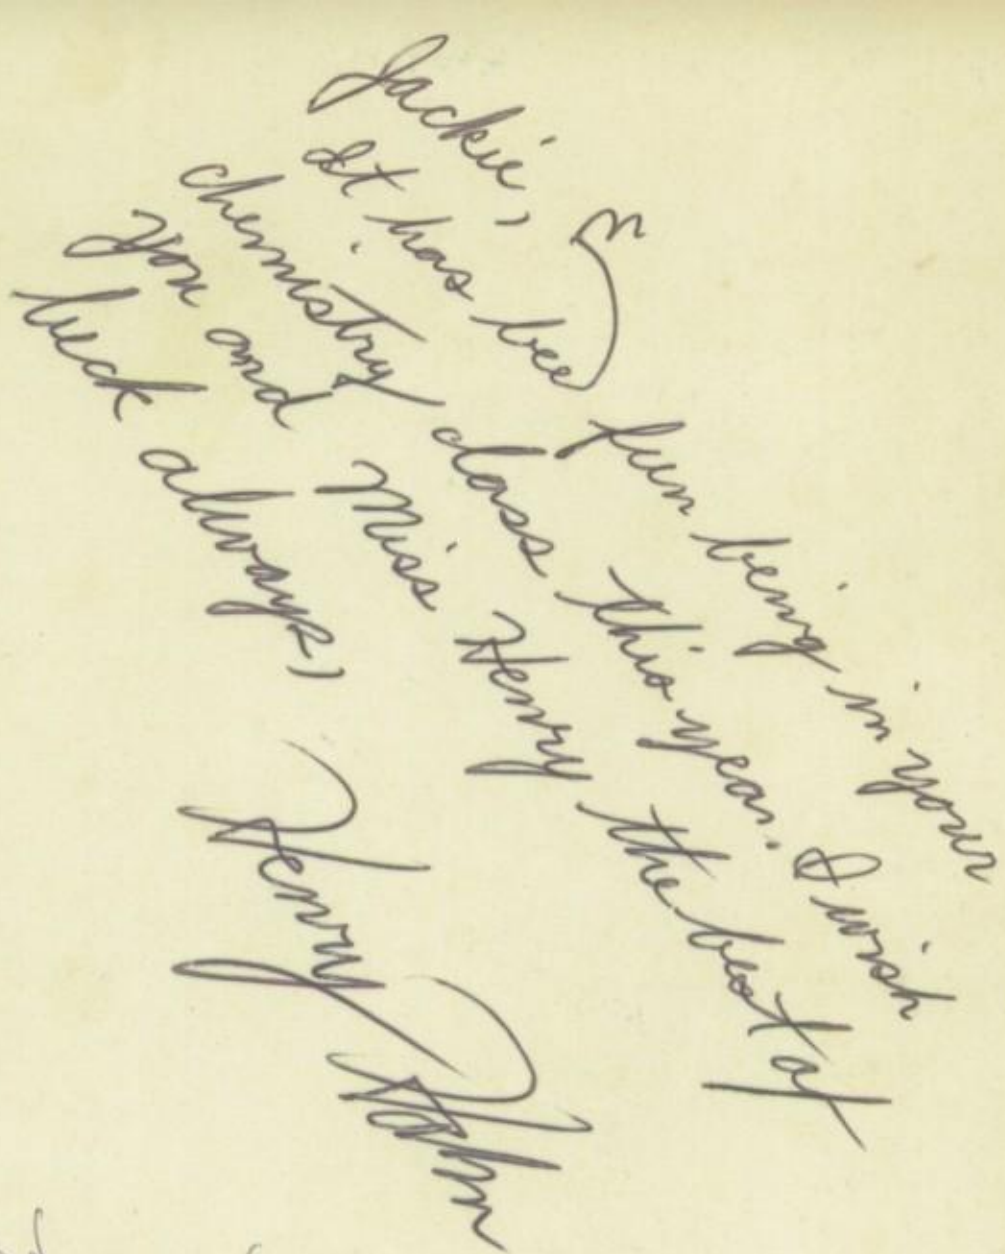 Jackie,
It has been fun being in your
chemistry class this year. I wish
you and Miss Henry the best of
luck always,
Henry Rahn